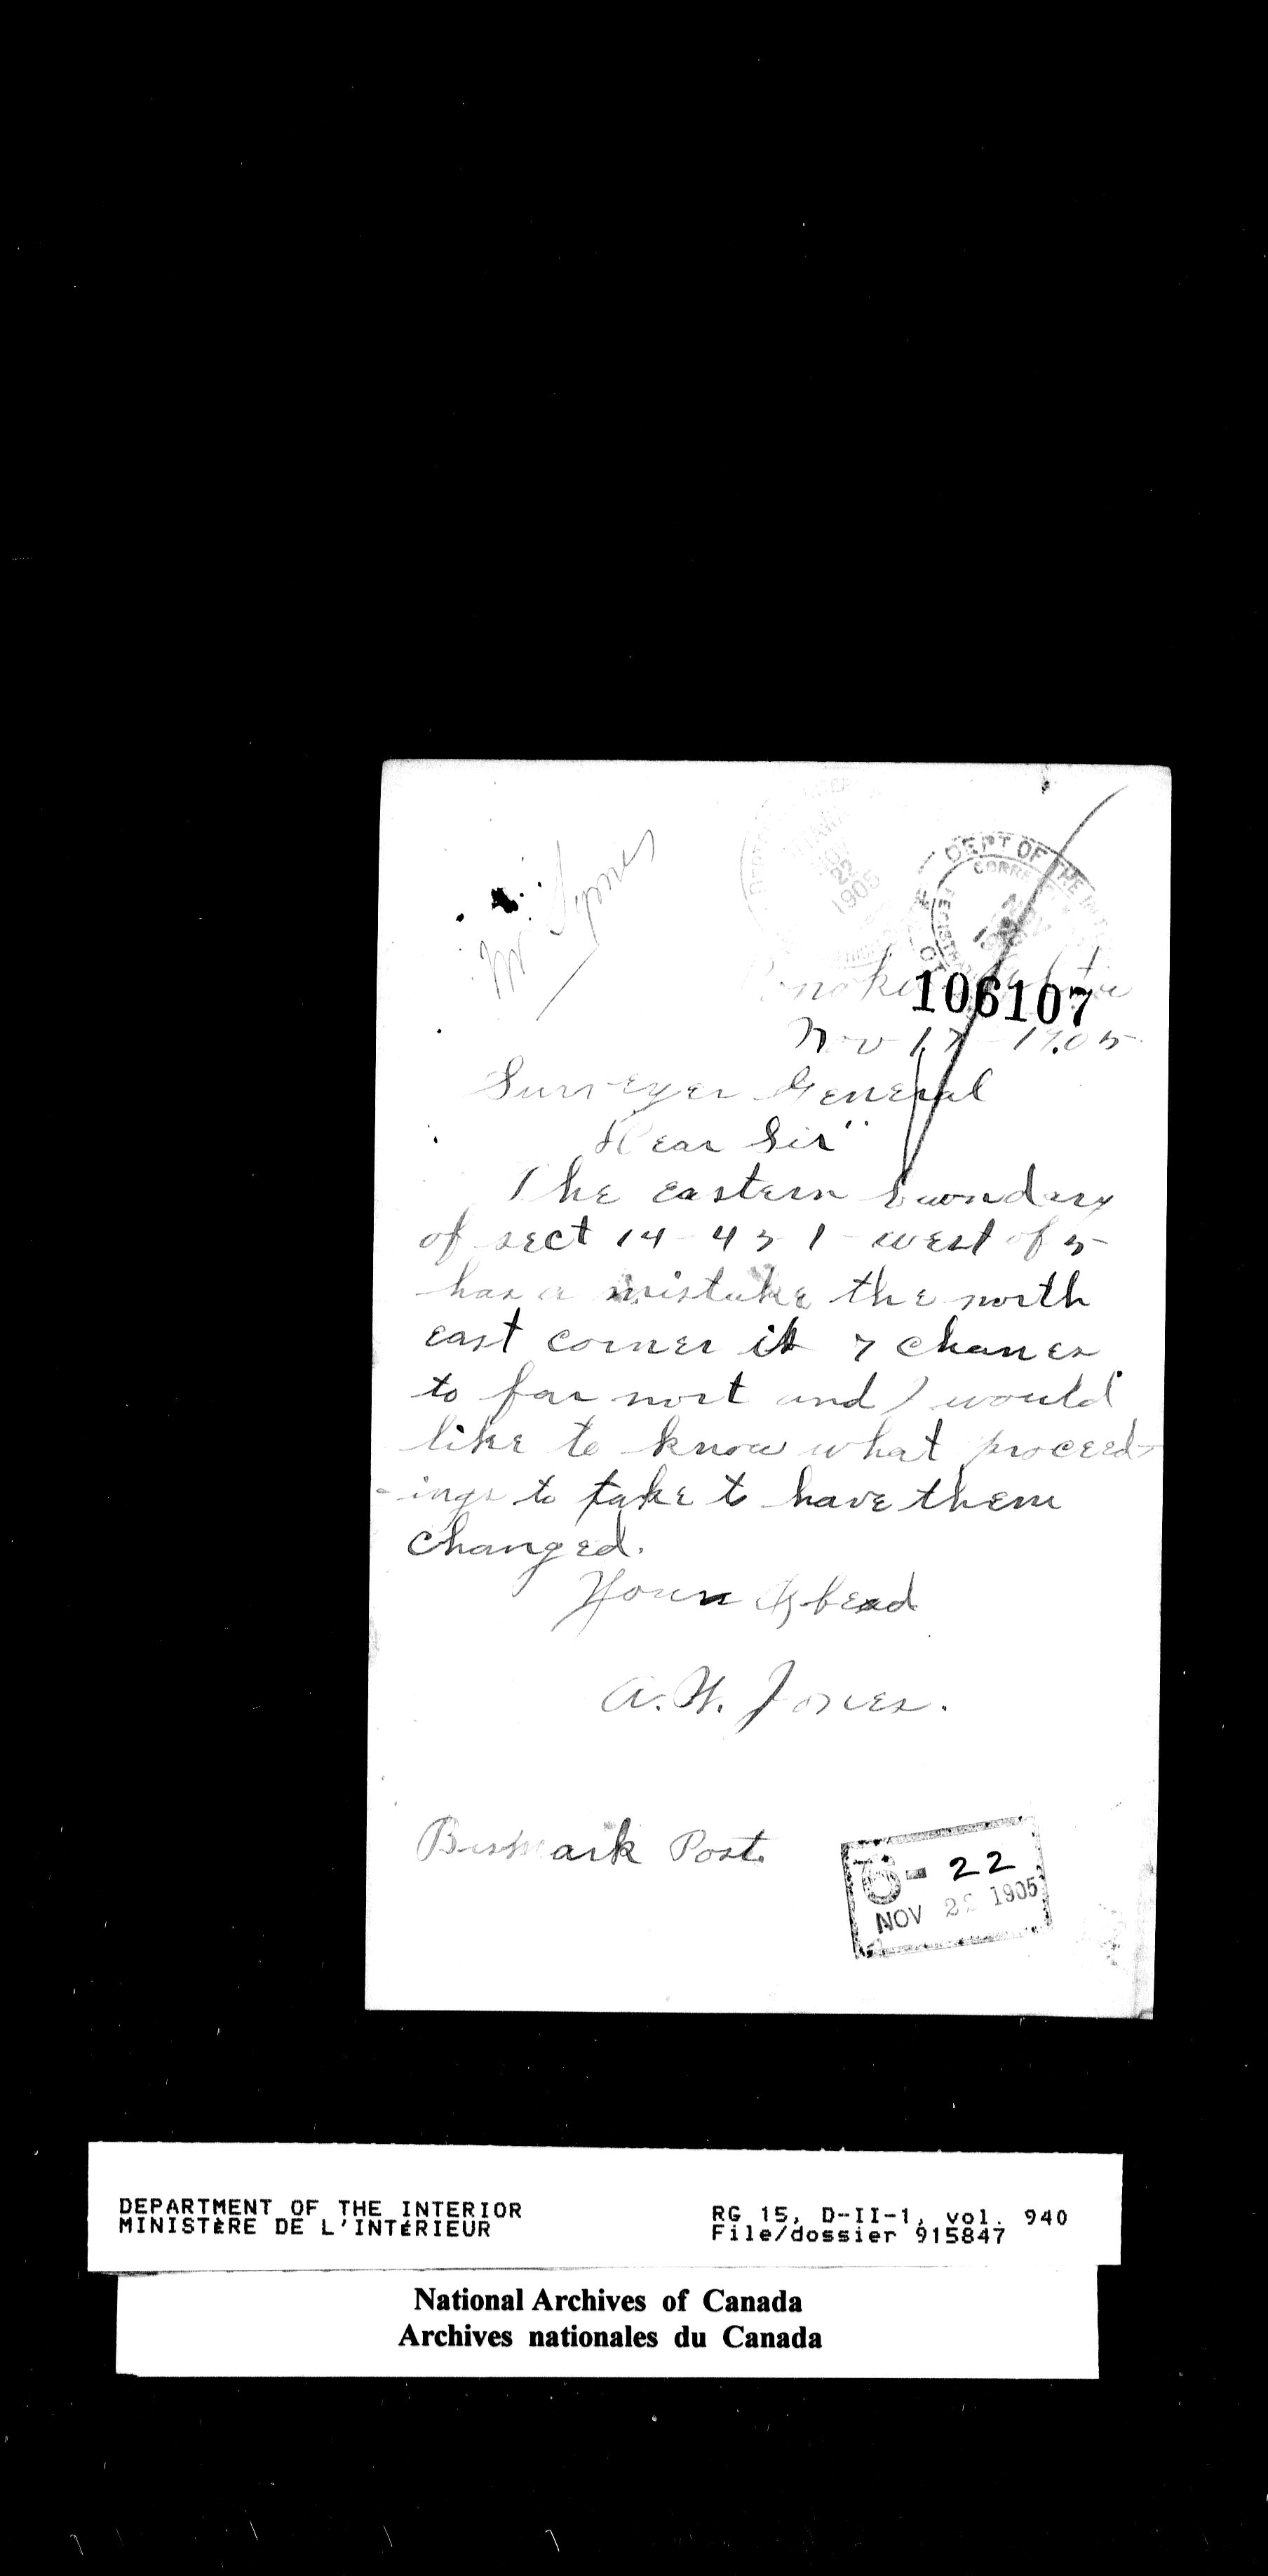 Mr Symes
OTTAWA
NOV
22
1905
DEPT OF THE
106107
Nov 17 - 1905
Surveyer General
Dear Sir"
The eastern bwondary
of sect 14 - 43 1 - west of 5
has a mistake the north
east corner is 7 chanes
to far nort and I would
like to know what proceed-
-ings to take to have them
changed.
Yours
A. W. Jones.
Bismark Post.
6 - 22
NOV 22 1905
DEPARTMENT OF THE INTERIOR
MINISTÈRE DE L'INTÉRIEUR
RG 15, D-II-1, vol. 940
File/dossier 915847
National Archives of Canada
Archives nationales du Canada